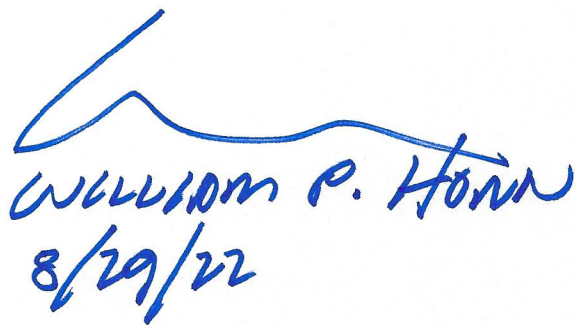 WILLIAM P. HORN
8/29/22